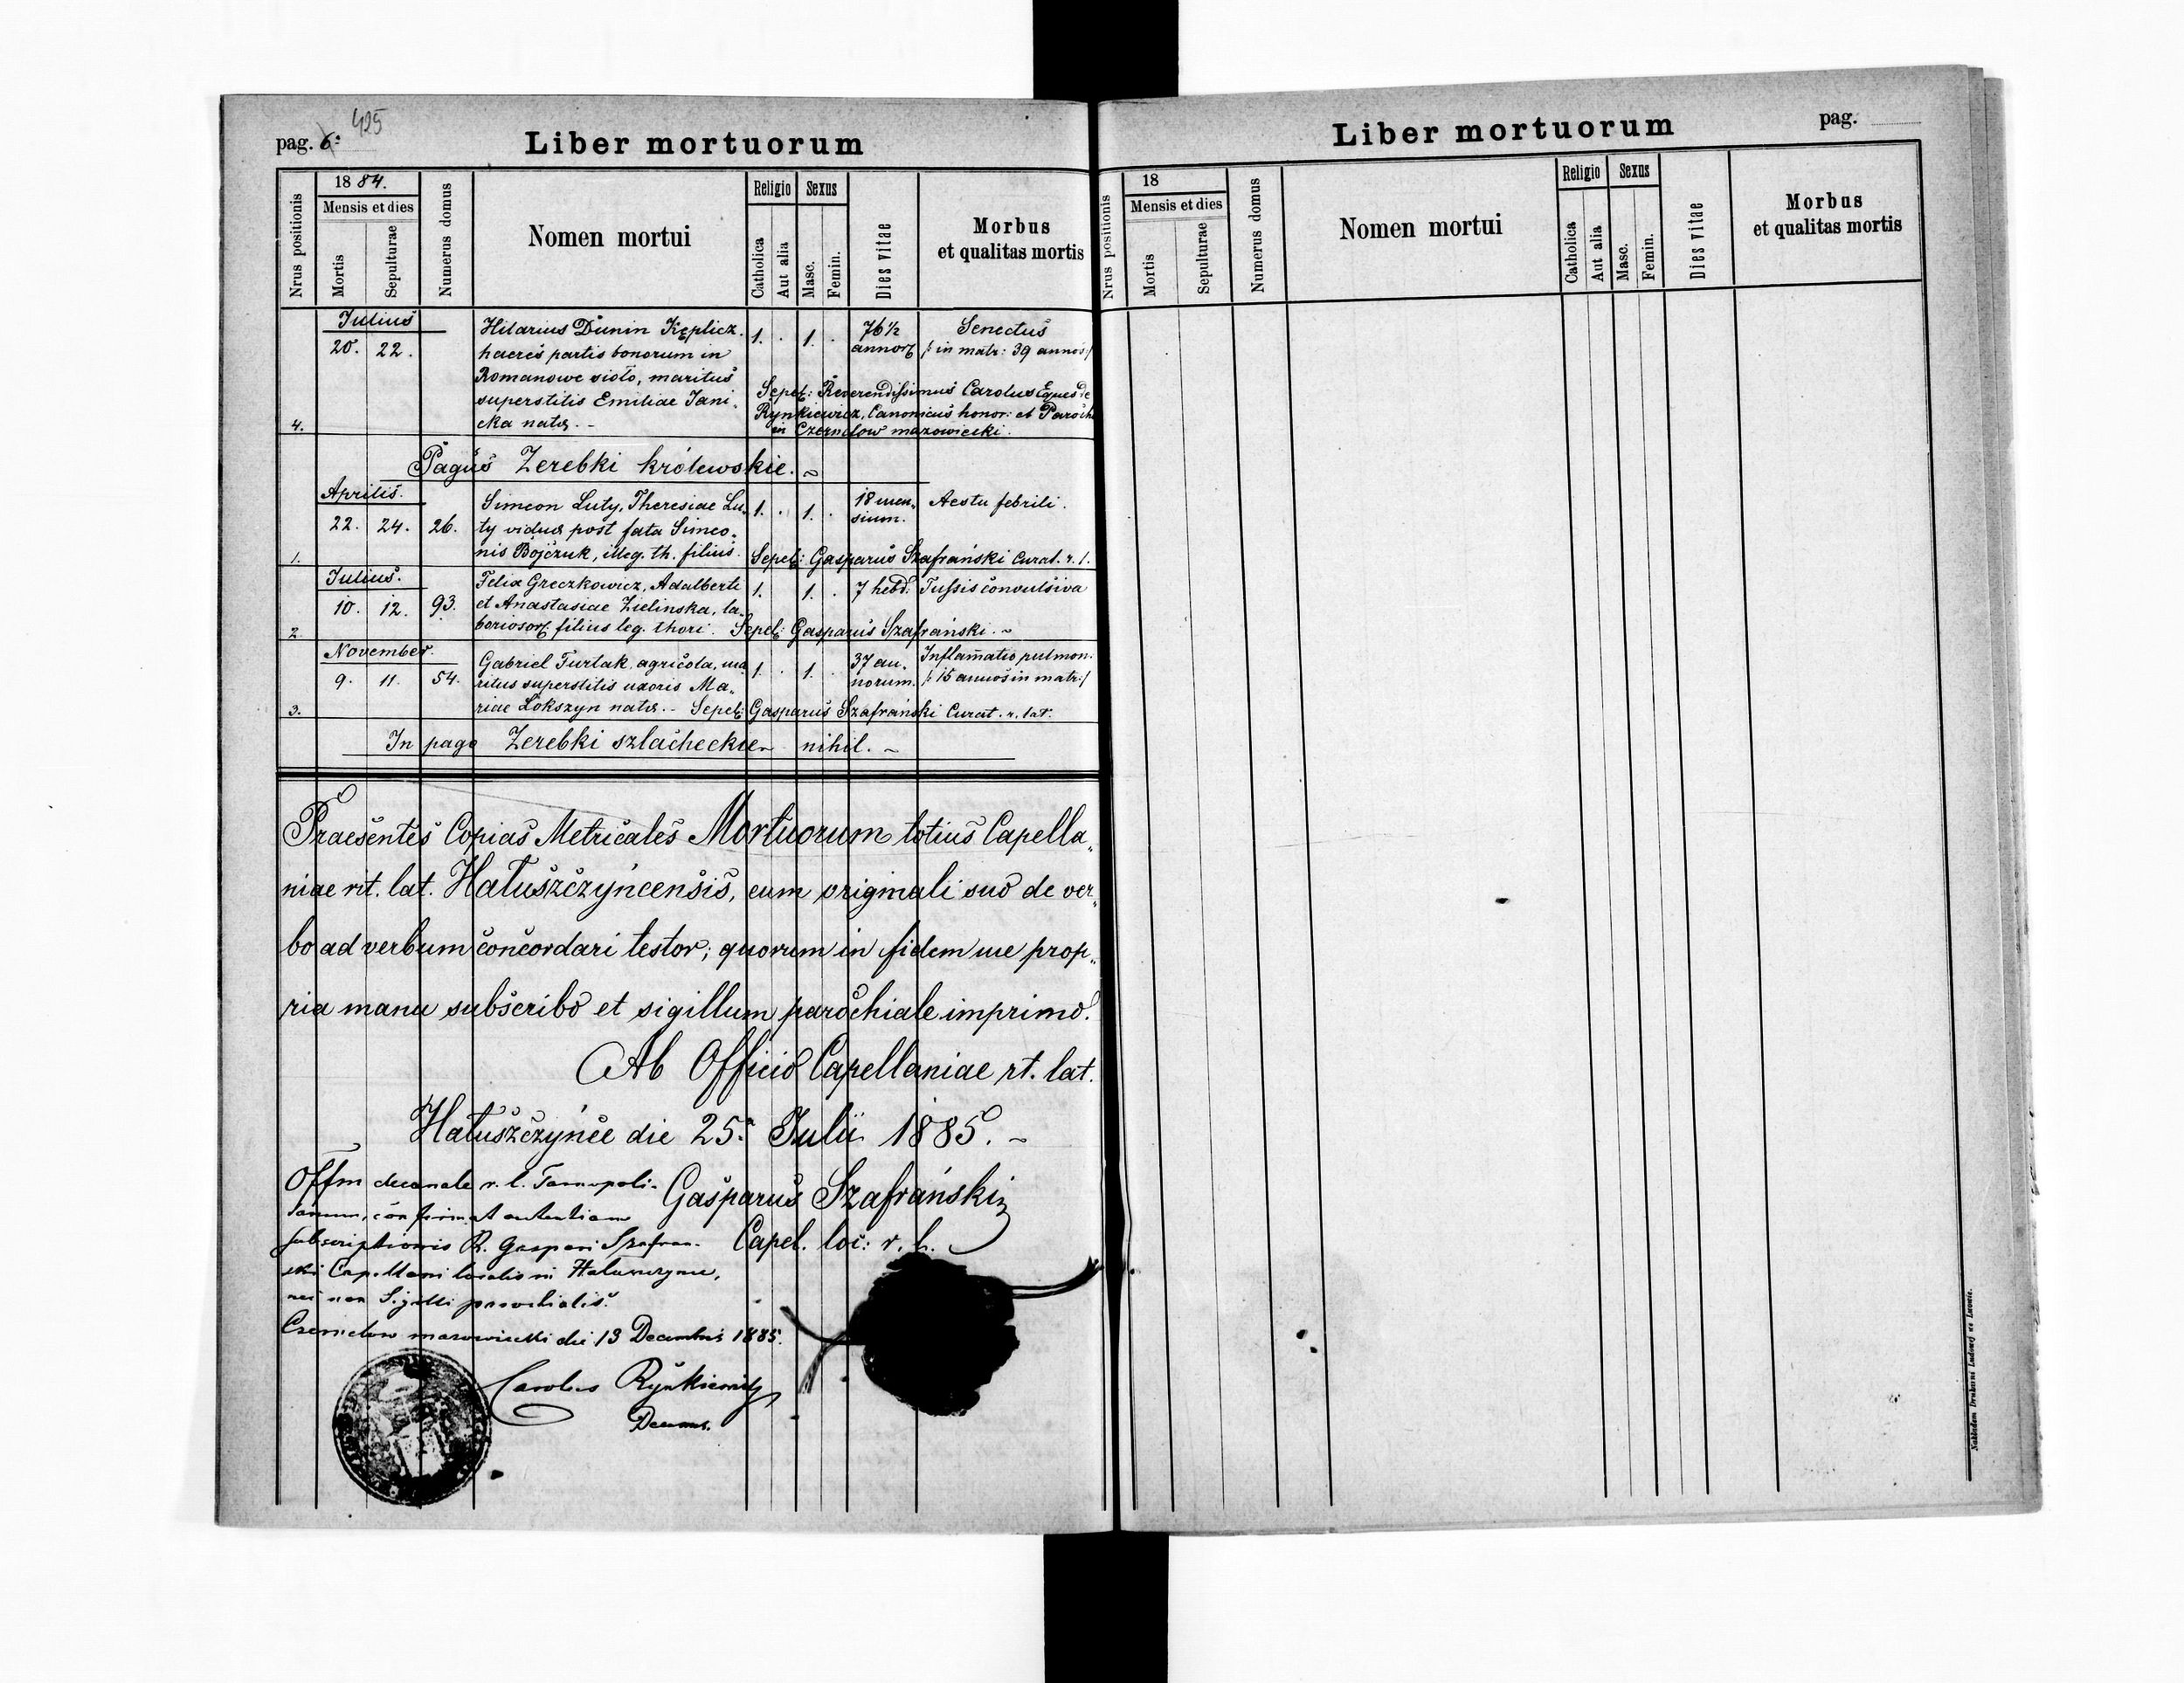 pag. 6: 425
Liber mortuorum
Nrus positionis
18 84.
Mensis et dies
Mortis
Sepulturae
Numerus domus
Nomen mortui
Religio
Catholica
Aut alia
Sexus
Masc.
Femin.
Dies vitae
Morbus
et qualitas mortis
Julius
20. 22. Hilarius Dunin Kęplicz. 1. . 1. . 76 1/2 Senectus
haeres partis bonorum in annor. /: in matr: 39 annos/
Romanowe sioło, maritus
superstitis Emiliae Jani- Sepel: Reverendissimus Carolus Eques de
cka natæ. - Rynkiewicz, Canonicus honor: et Paroch
4. in Czernelow mazowiecki.
Pagus Zerebki królewskie. ~
Aprilis.
22. 24. 26. Simeon Luty, Theresiae Lu- 1. . 1. . 18 men- Aestu febrili.
ty viduæ post fata Simeo- sium.
1. nis Bojczuk, illeg. th. filius. Sepel: Gasparus Szafrański Curat. r. l.
Julius.
10. 12. 93. Felix Greczkowicz, Adalberti 1. 1. . 7 hebd. Tussis convulsiva
et Anastasiae Zielinska, la-
2. boriosor. filius leg. thori. Sepel: Gasparus Szafrański. ~
November.
9. 11. 54. Gabriel Furtak, agricola, ma 1. . 1. . 37 an- Inflammatio pulmon.
ritus superstitis uxoris Ma- norum. /: 15 annos in matr:/
3. riae Lokszyn natæ. - Sepel: Gasparus Szafrański Curat. r. lat.
In pago Zerebki szlacheckie - nihil. ~
Praesentes Copias Metricales Mortuorum totius Capella„
niae rit. lat. Hałuszczyńcensis, cum originali suo de ver„
bo ad verbum concordari testor; quorum in fidem me prop„
ria manu subscribo et sigillum parochiale imprimo.
Ab Officio Capellaniae rt. lat.
Hałuszczyńce die 25.a Julii 1885. ~
Gasparus Szafrański
Capel. loc: r. l.
Offm decanale r. l. Tarnopoli-
tanum, confirmat autentiam
subscriptionis R. Gaspari Szafran-
ski Capellani localis in Haluszczynce,
nec non Sigilli parochialis.
Czernelow mazowiecki die 13 Decembris 1885.
Carolus Rynkiewicz
Decanus.
Liber mortuorum
pag.
Nrus positionis
18
Mensis et dies
Mortis
Sepulturae
Numerus domus
Nomen mortui
Religio
Catholica
Aut alia
Sexus
Masc.
Femin.
Dies vitae
Morbus
et qualitas mortis
Nakładem Drukarni Ludowej we Lwowie.